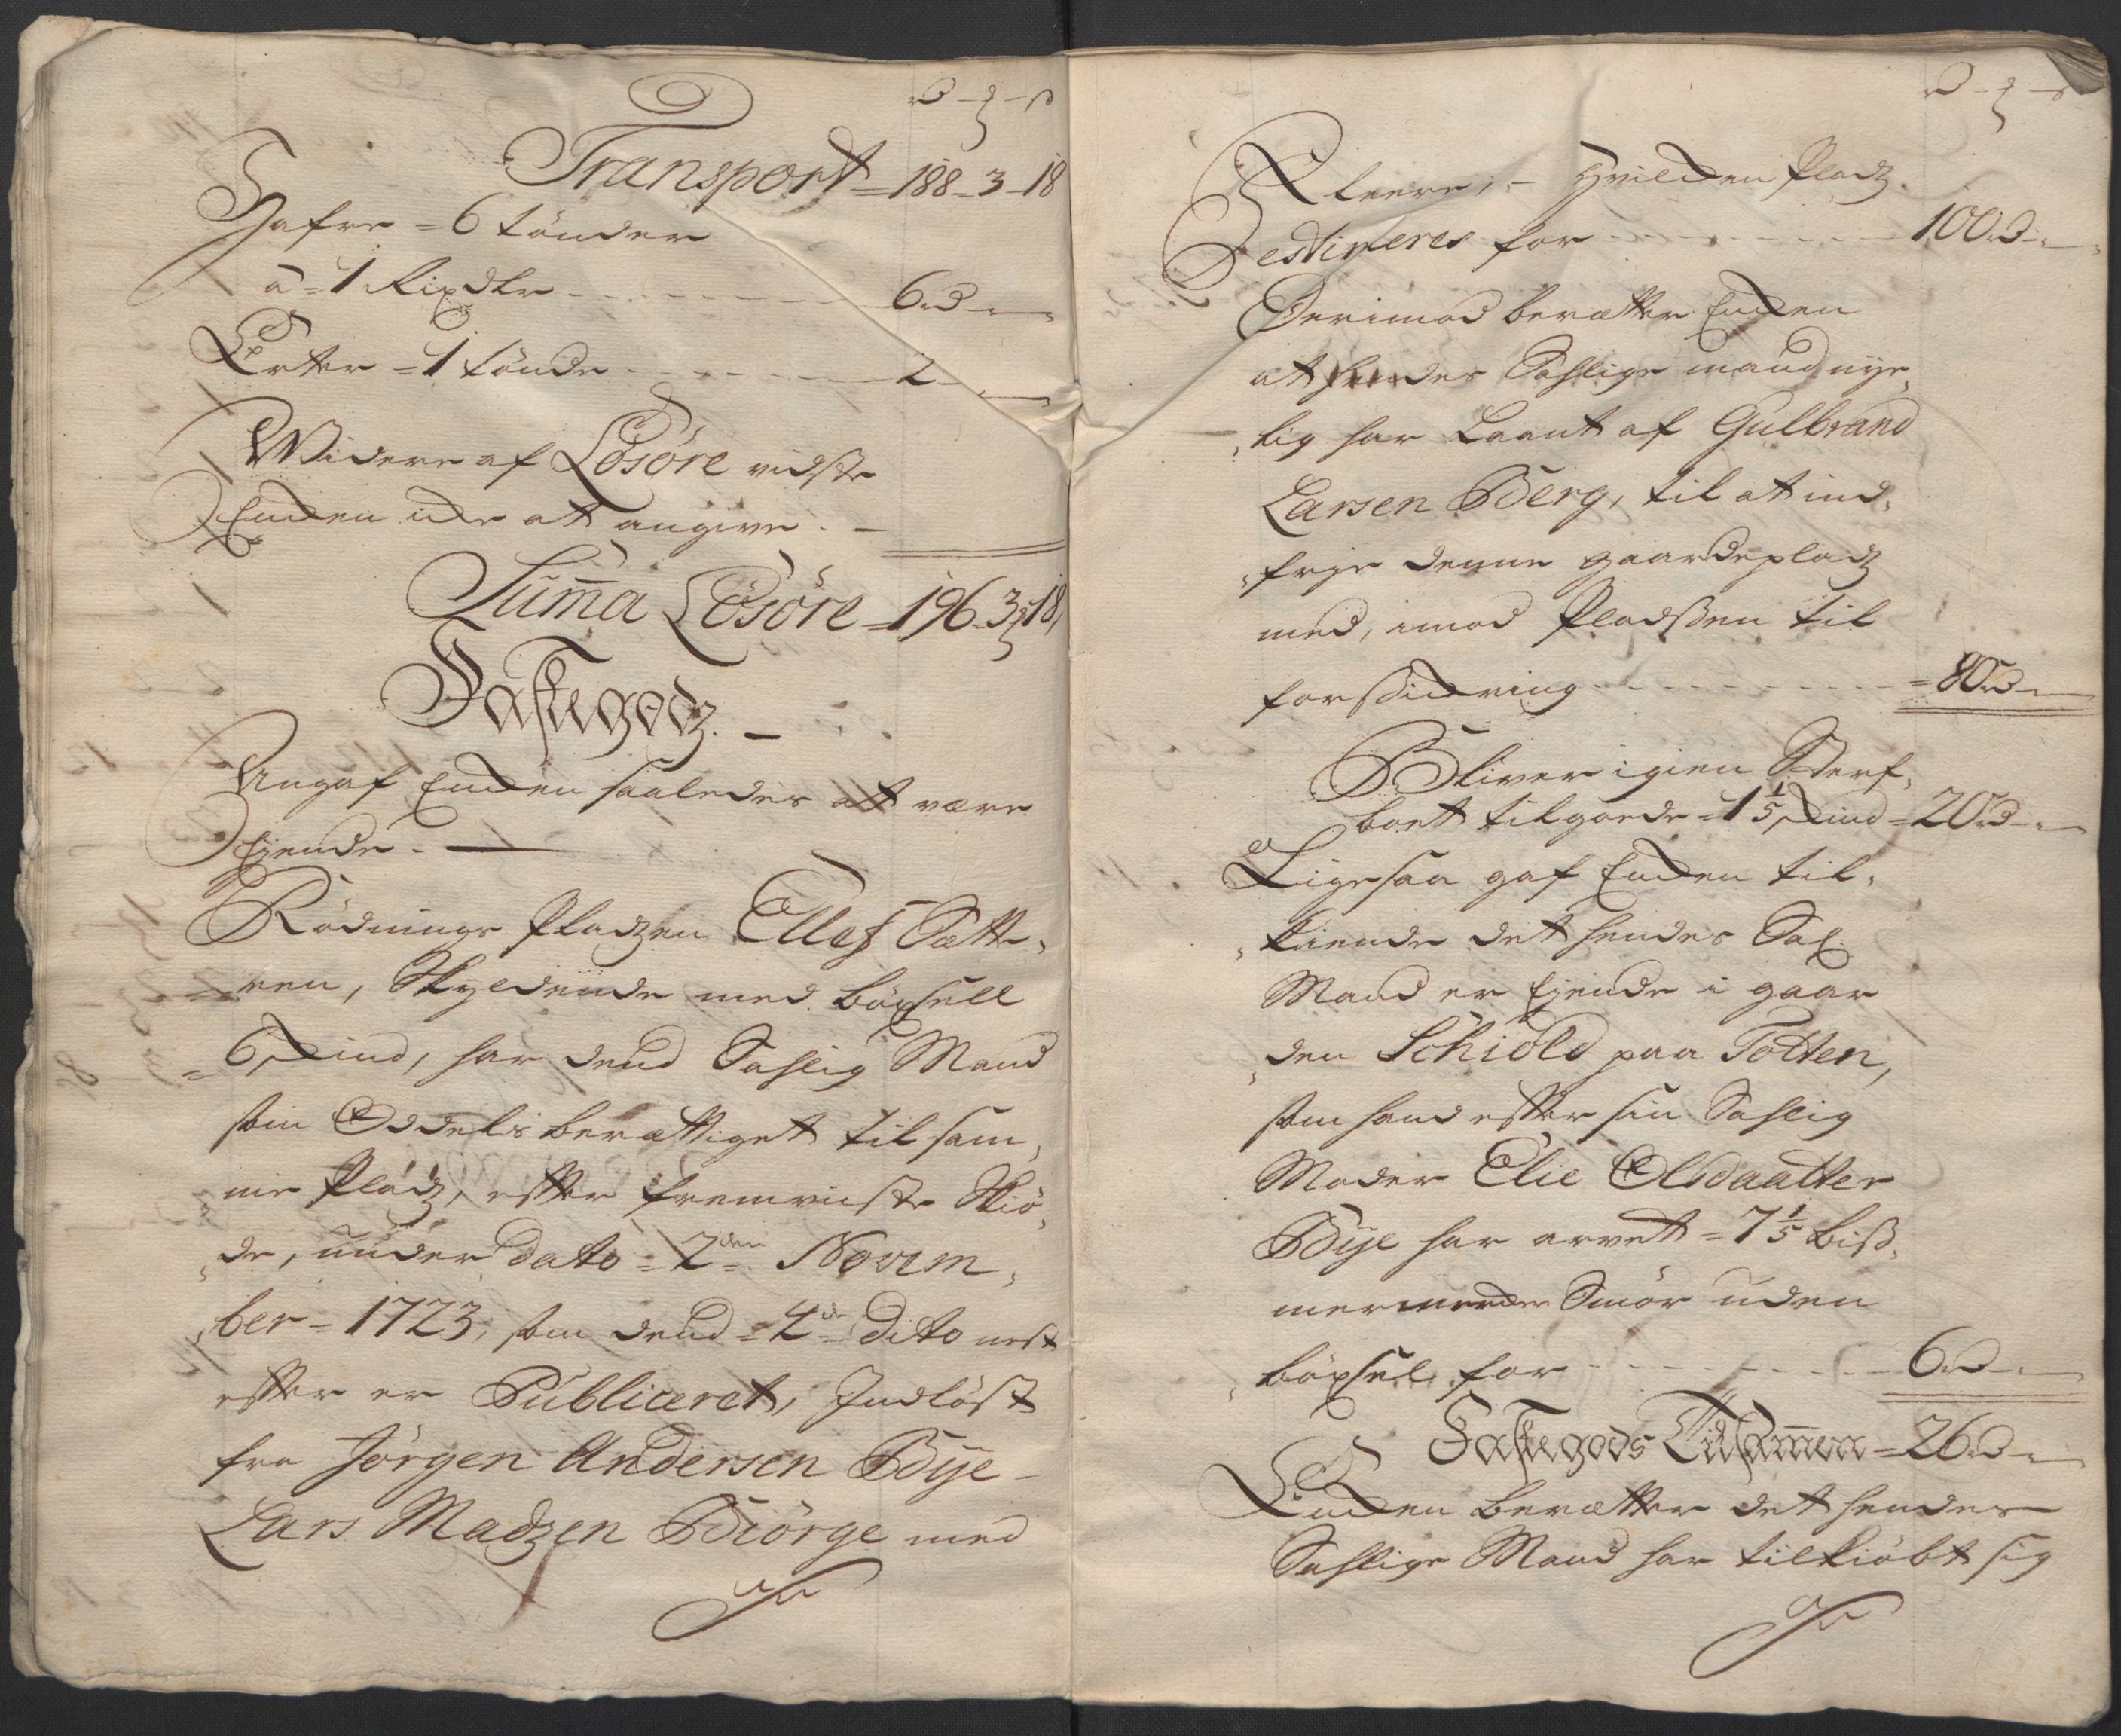 rd - ƺ - s
Transport = 188 - 3 - 18
Hafre = 6 tönder
a = 1 Rixdlr - - - 6 rd
Erter = 1 tönde - - - 2 -
Widere af Lösöre vidste
Enken icke at angive. -
Sum̄a Lösöre = 196. 3 ƺ 18,
Jastegodz. -
Angaf Enken saaledes att være
Ejende. -
Rödnings Pladzen Ellef Sætte,
ren, Skyldende med böxsell
6 skind, har dend Sahlig Mand
som Oddels berættiget til sam,
me Pladz, efter fremviiste Skiö,
de, under dato = 2den Novem,
ber = 1723, som dend = 4de dito nest
efter er Publiceret, Indlöst
fra Jörgen Andersen Bÿe -
Lars Madzen Biörge med
rd - ƺ - s
fleere; - hvilcken Pladz.
estimeres for - - - 100 rd
Derimod berætter Encken
at hendes Sahlige mand nÿe,
lig har Laant af Gulbrand
Larsen Berg, til at ind,
frje denne gaardeplads
med, imod Pladsen til
forsickring - - - = 80 rd
Bliver igien Sterf,
boet tilgoede = 1 1/5 skind = 20 rd
Ligesaa gaf Encken til,
kiende det hendes Sal.
Mand er Ejende i gaar
den Schiöld paa Totten,
som hand efter sin Sahlig
Moder Elie Olsdaatter
Bÿe har arvet = 7 1/5 biss,
mermerker Smör uden
böxsel, for - - - 6 rd
Jastegods Tilsam̄en = 26 rd
Encken berætter det hendes
Sahlige Mand har tilkiöbt sig